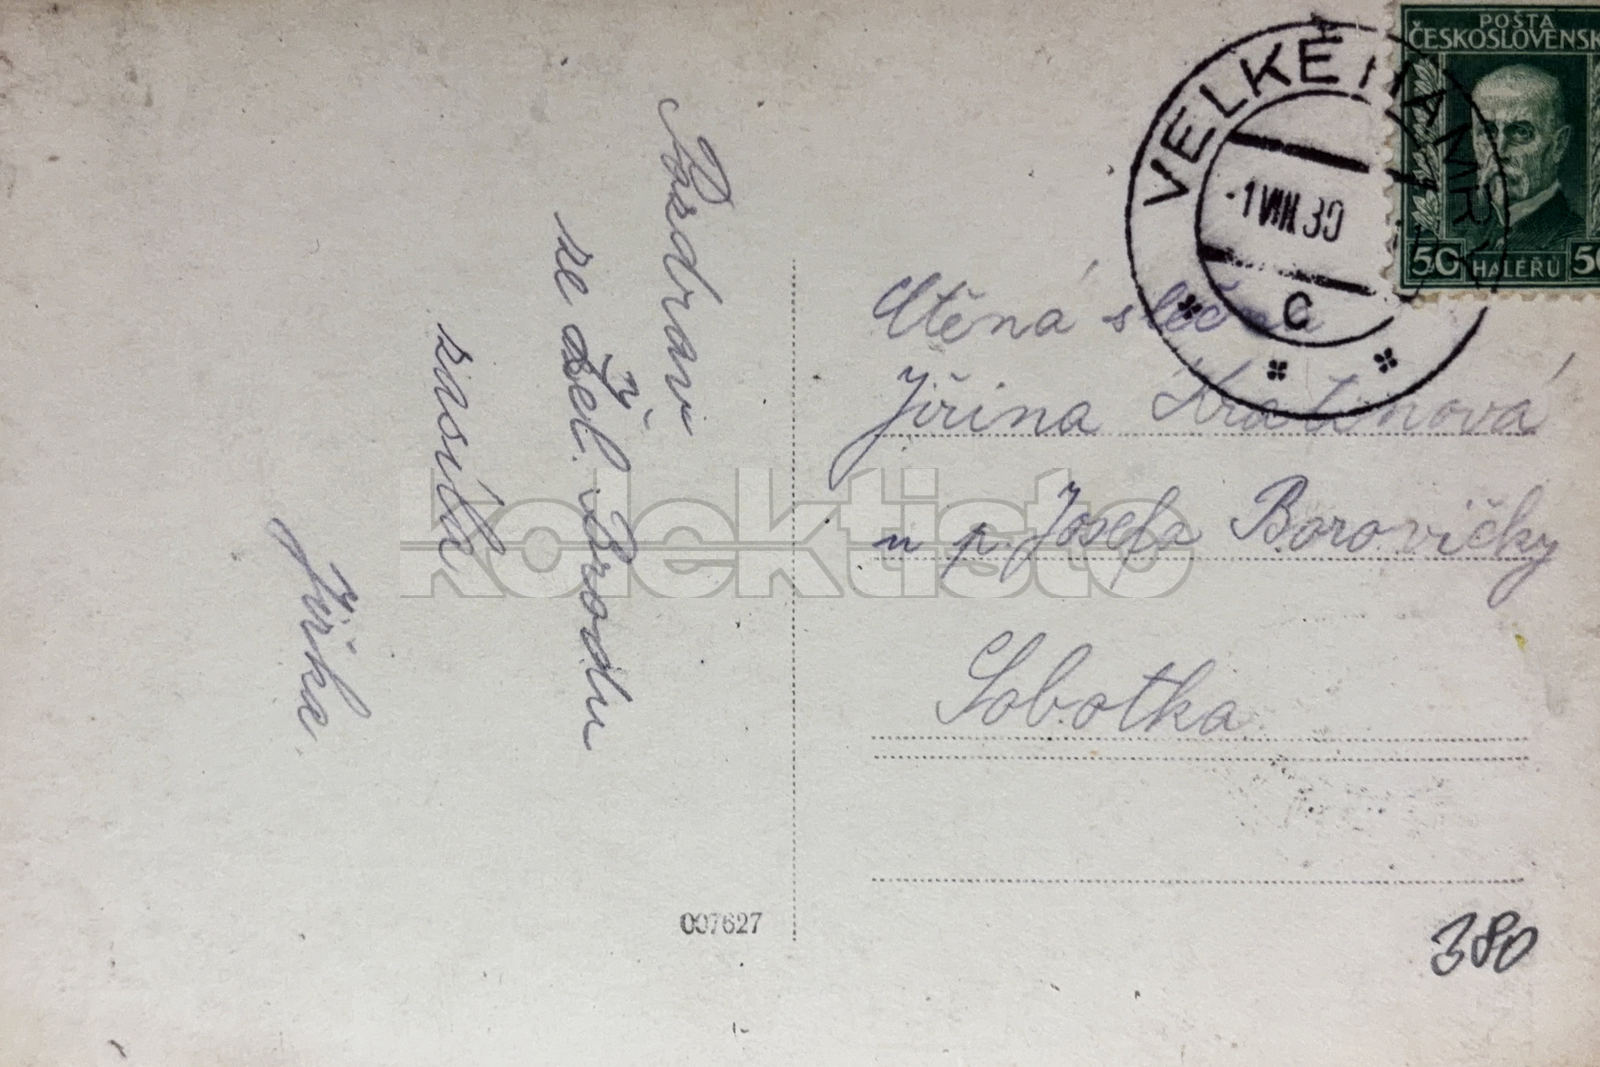 Pozdrav
ze Žel. Brodu
zasílá
Jiřka.
007627
POŠTA
ČESKOSLOVENSK
50 HALÉŘŮ 50
VELKÉ HAMRY
-1.VIII.30
C
Ctěná slečna
Jiřina
u p. Josefa Borovičky
Sobotka
380
kolektisto